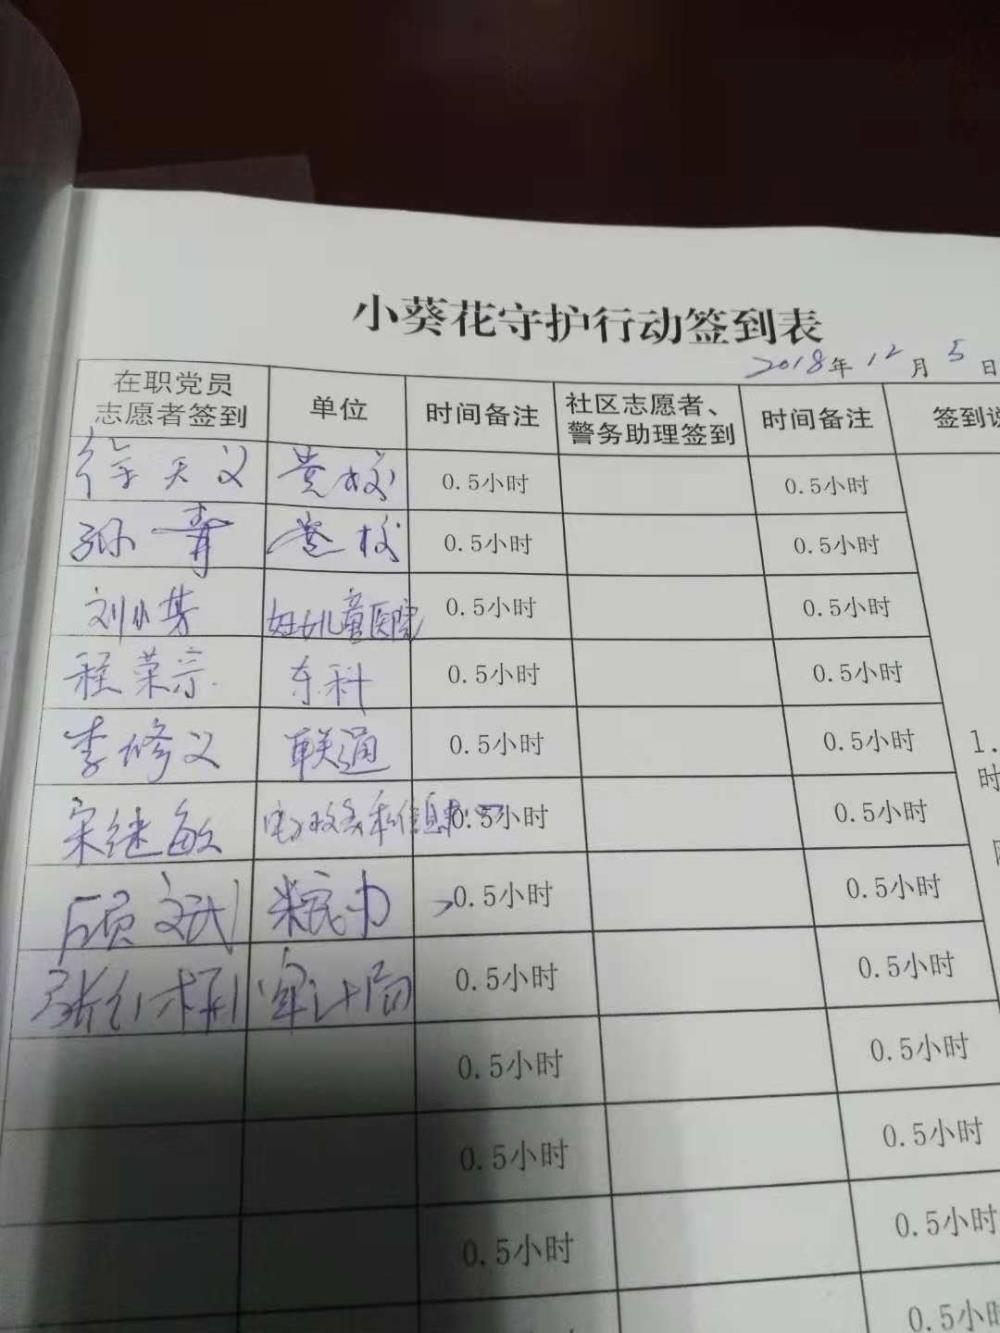 小葵花守护行动签到表
2018年12月5日
在职党员 志愿者签到 单位 时间备注 社区志愿者、警务助理签到 时间备注 签到说
徐天义 党校 0.5小时 0.5小时
孙青 党校 0.5小时 0.5小时
刘小芳 妇女儿童医院 0.5小时 0.5小时
程荣宗 东科 0.5小时 0.5小时
李修义 联通 0.5小时 0.5小时 1.
时
宋继敏 电子政务和信息 0.5小时 0.5小时
顾文武 0.5小时 0.5小时
张 审计局 0.5小时 0.5小时
0.5小时 0.5小时
0.5小时 0.5小时
0.5小时 0.5小时
0.5小时